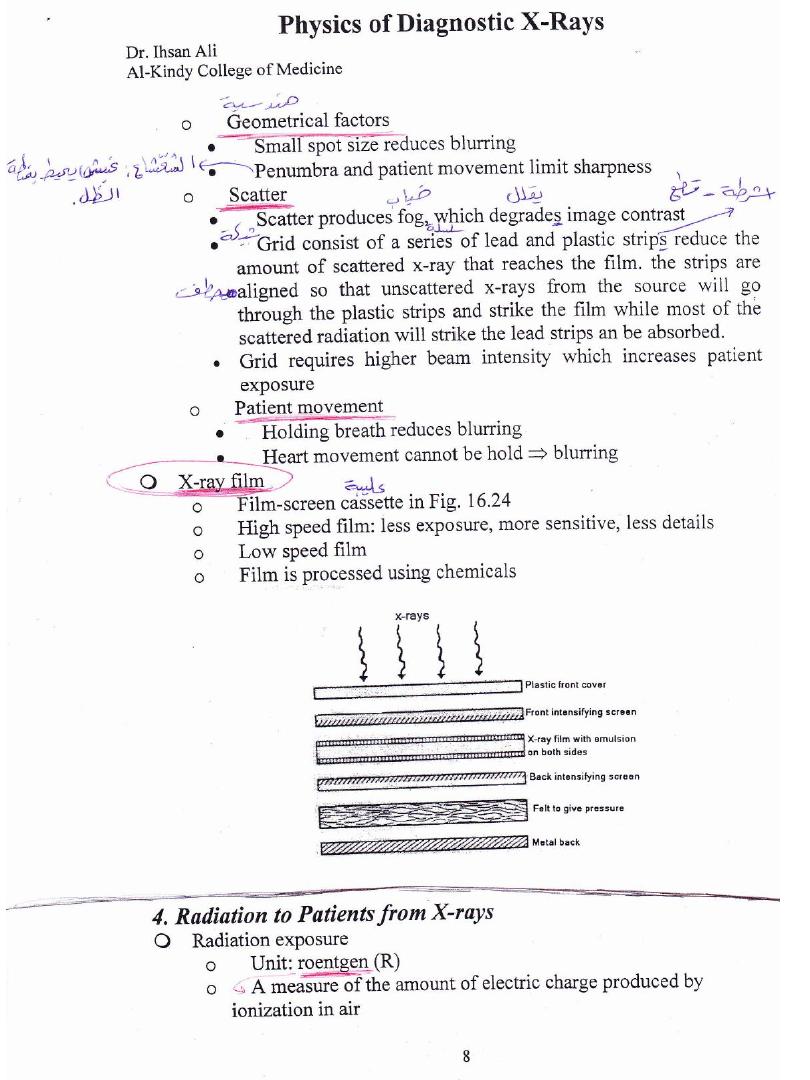 Physics of Diagnostic X-Rays
Dr. Ihsan Ali
Al-Kindy College of Medicine
هندسية
o Geometrical factors
• Small spot size reduces blurring
• Penumbra and patient movement limit sharpness
الظل.
o Scatter
ضباب يقلل أشرطة - قطع
• Scatter produces fog, which degrades image contrast
شبكة سلسلة
• Grid consist of a series of lead and plastic strips reduce the
amount of scattered x-ray that reaches the film. the strips are
aligned so that unscattered x-rays from the source will go
through the plastic strips and strike the film while most of the
scattered radiation will strike the lead strips an be absorbed.
• Grid requires higher beam intensity which increases patient
exposure
o Patient movement
• Holding breath reduces blurring
• Heart movement cannot be hold ⇒ blurring
O X-ray film
علبة
o Film-screen cassette in Fig. 16.24
o High speed film: less exposure, more sensitive, less details
o Low speed film
o Film is processed using chemicals
x-rays
Plastic front cover
Front intensifying screen
X-ray film with emulsion
on both sides
Back intensifying screen
Felt to give pressure
Metal back
4. Radiation to Patients from X-rays
O Radiation exposure
o Unit: roentgen (R)
o A measure of the amount of electric charge produced by
ionization in air
8